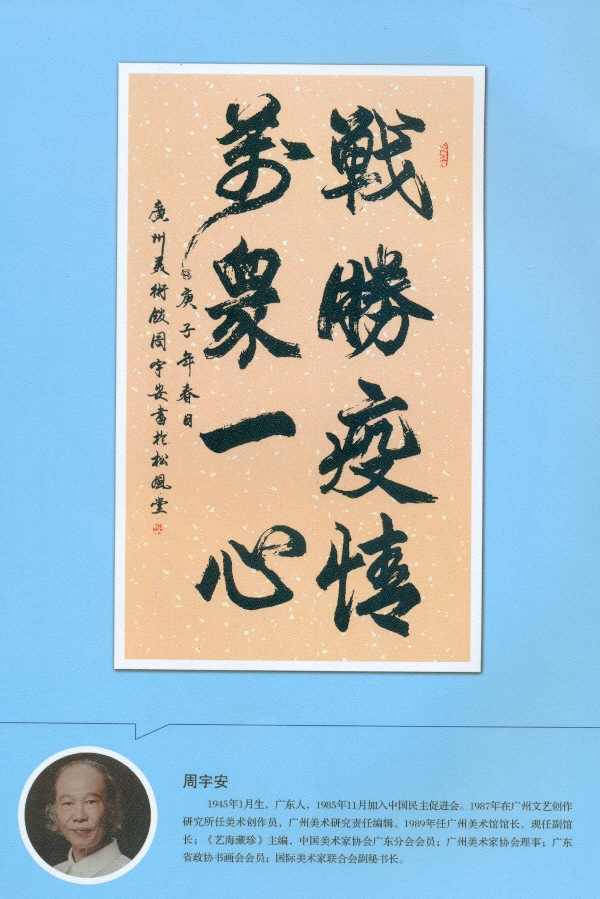 戰勝疫情
萬衆一心
庚子年春日
廣州美術館周宇安書於松風堂
周宇安
1945年1月生，广东人，1985年11月加入中国民主促进会。1987年在广州文艺创作
研究所任美术创作员，广州美术研究责任编辑。1989年任广州美术馆馆长，现任副馆
长；《艺海藏珍》主编，中国美术家协会广东分会会员；广州美术家协会理事；广东
省政协书画会会员；国际美术家联合会副秘书长。